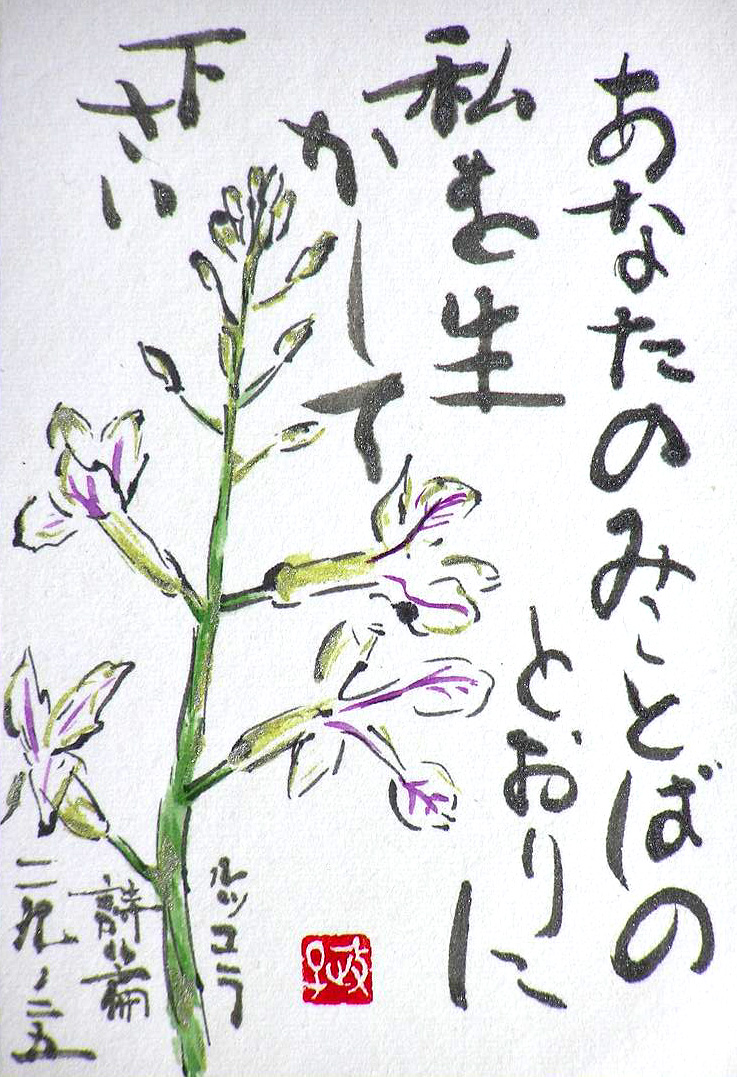 あなたのみことばの
とおりに
私を生
かして
下さい
ルッコラ
詩篇
一一九・二五